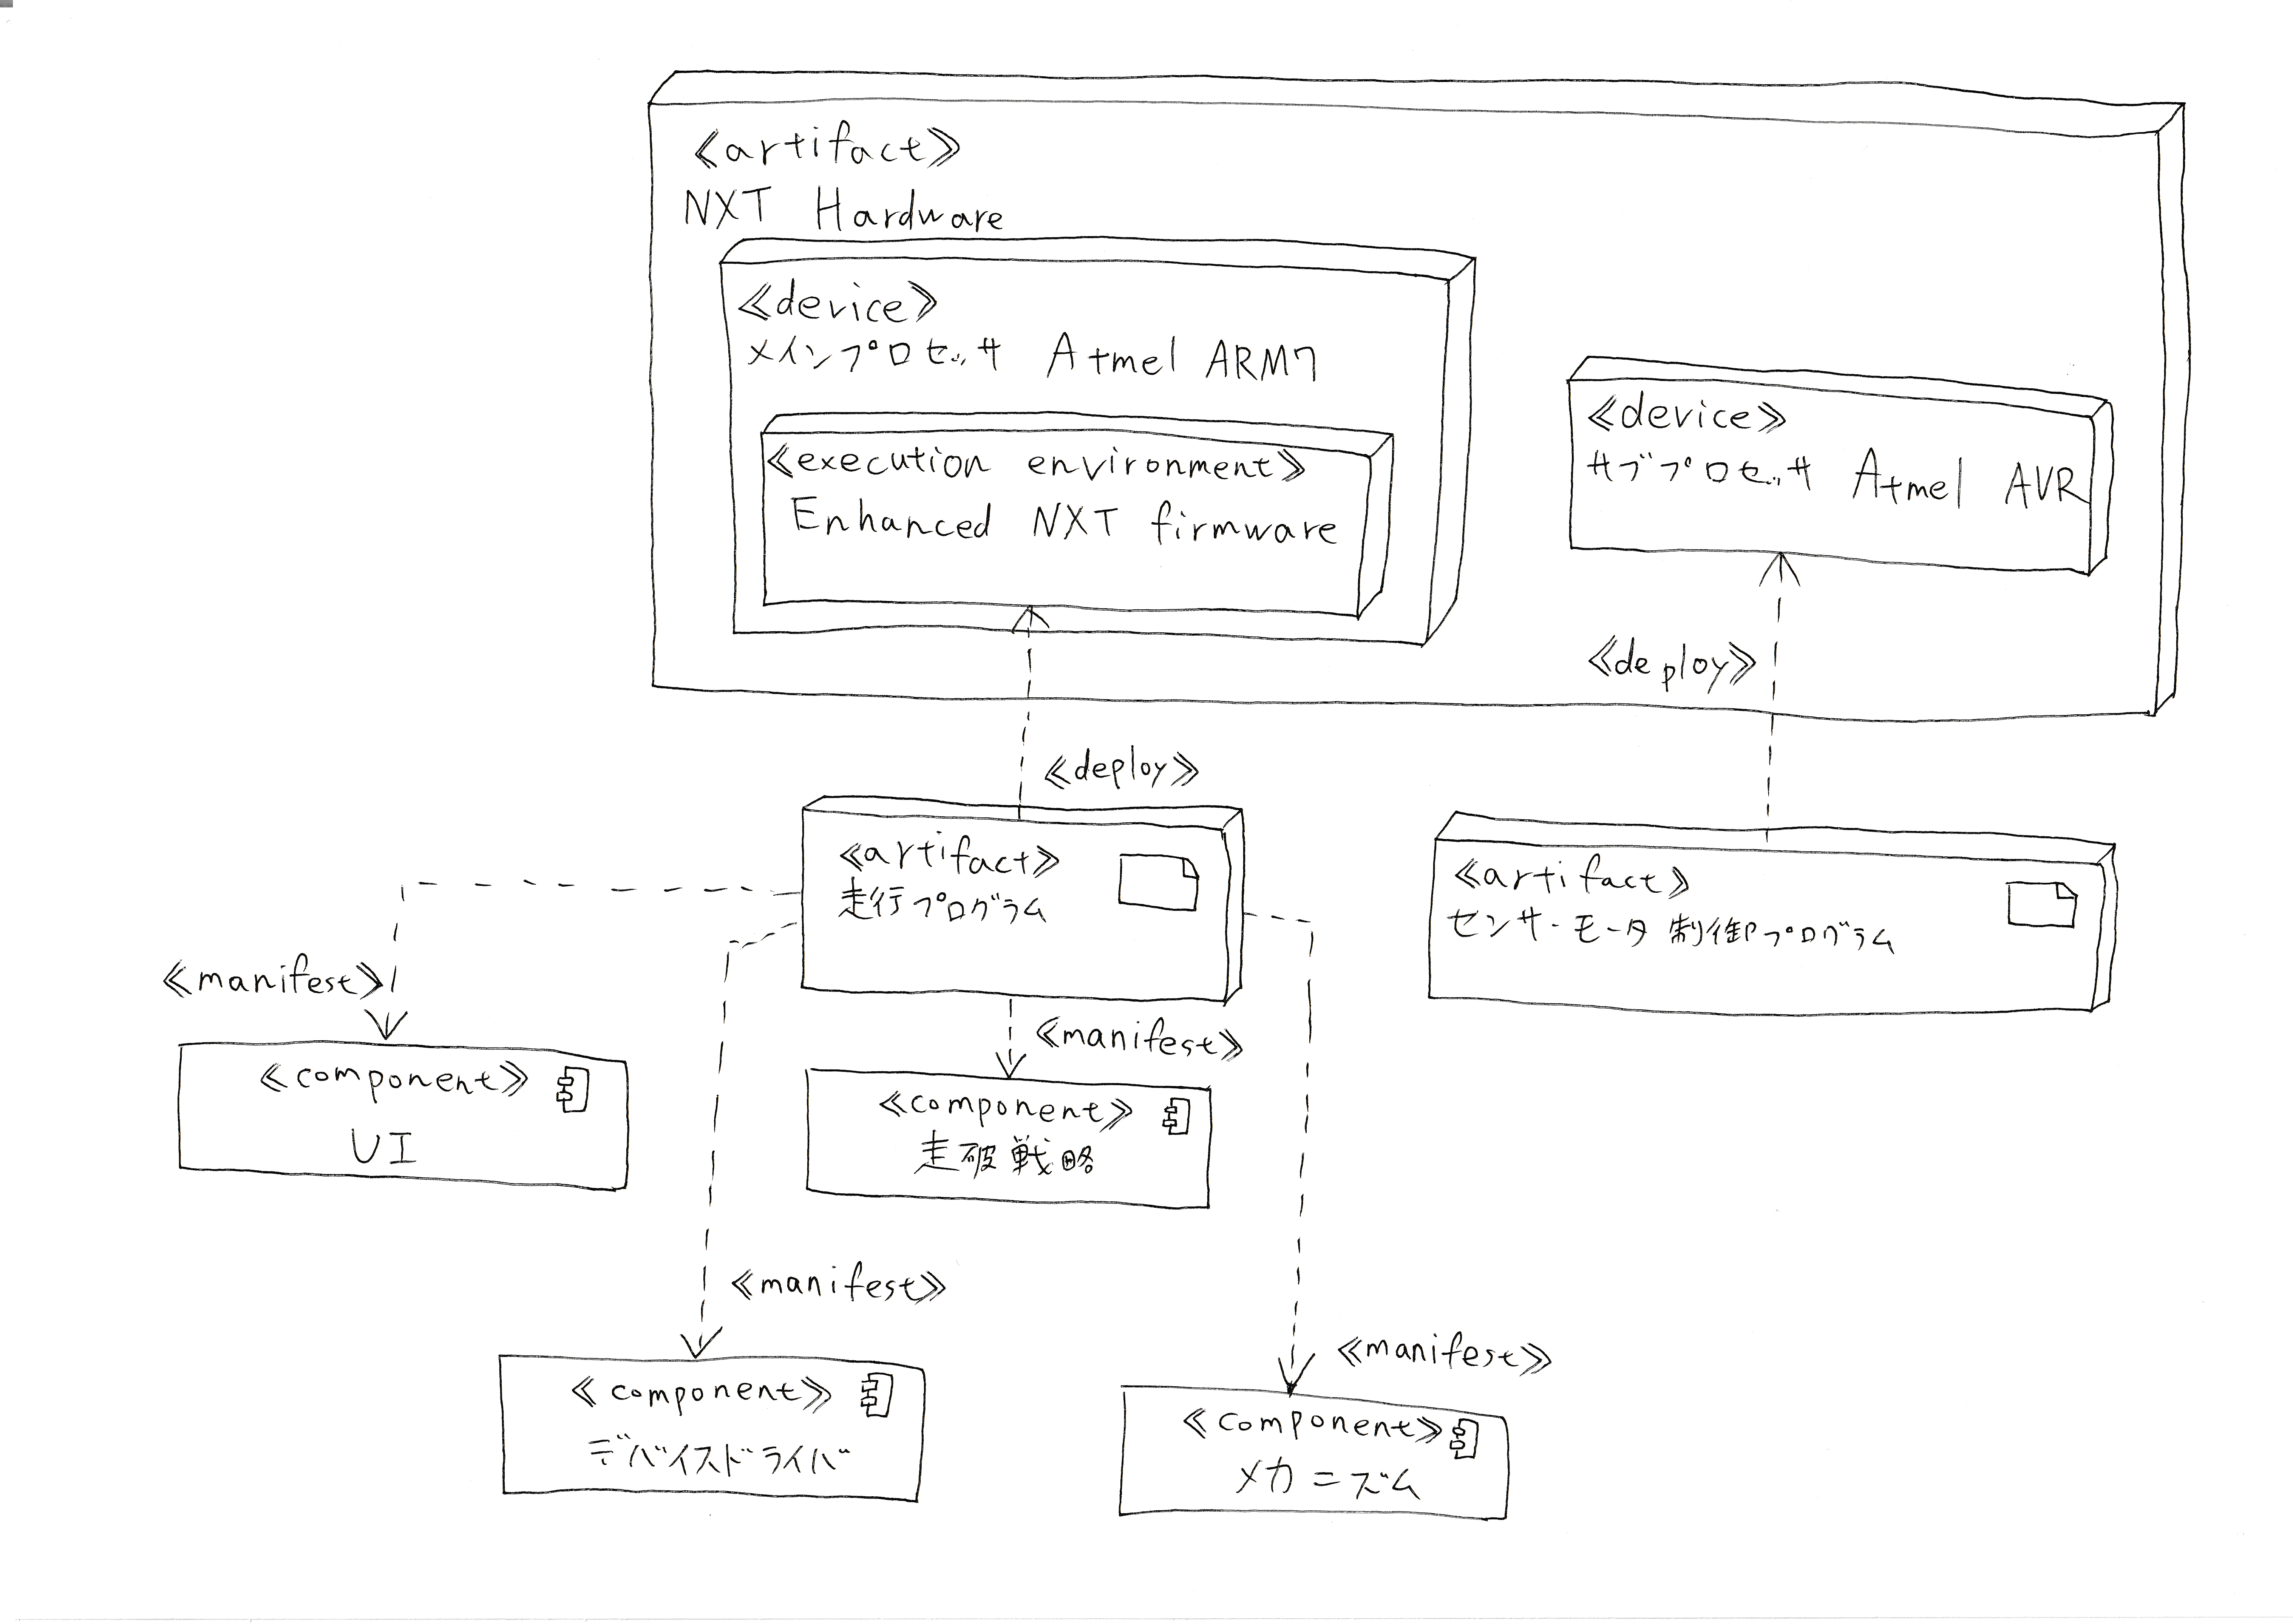 ≪artifact≫
NXT Hardware
≪device≫
メインプロセッサ Atmel ARM7
≪execution environment≫
Enhanced NXT firmware
≪device≫
サブプロセッサ Atmel AVR
≪deploy≫
≪deploy≫
≪artifact≫
走行プログラム
≪artifact≫
センサ・モータ制御プログラム
≪manifest≫
≪manifest≫
≪component≫
UI
≪component≫
走破戦略
≪manifest≫
≪manifest≫
≪component≫
デバイスドライバ
≪component≫
メカニズム